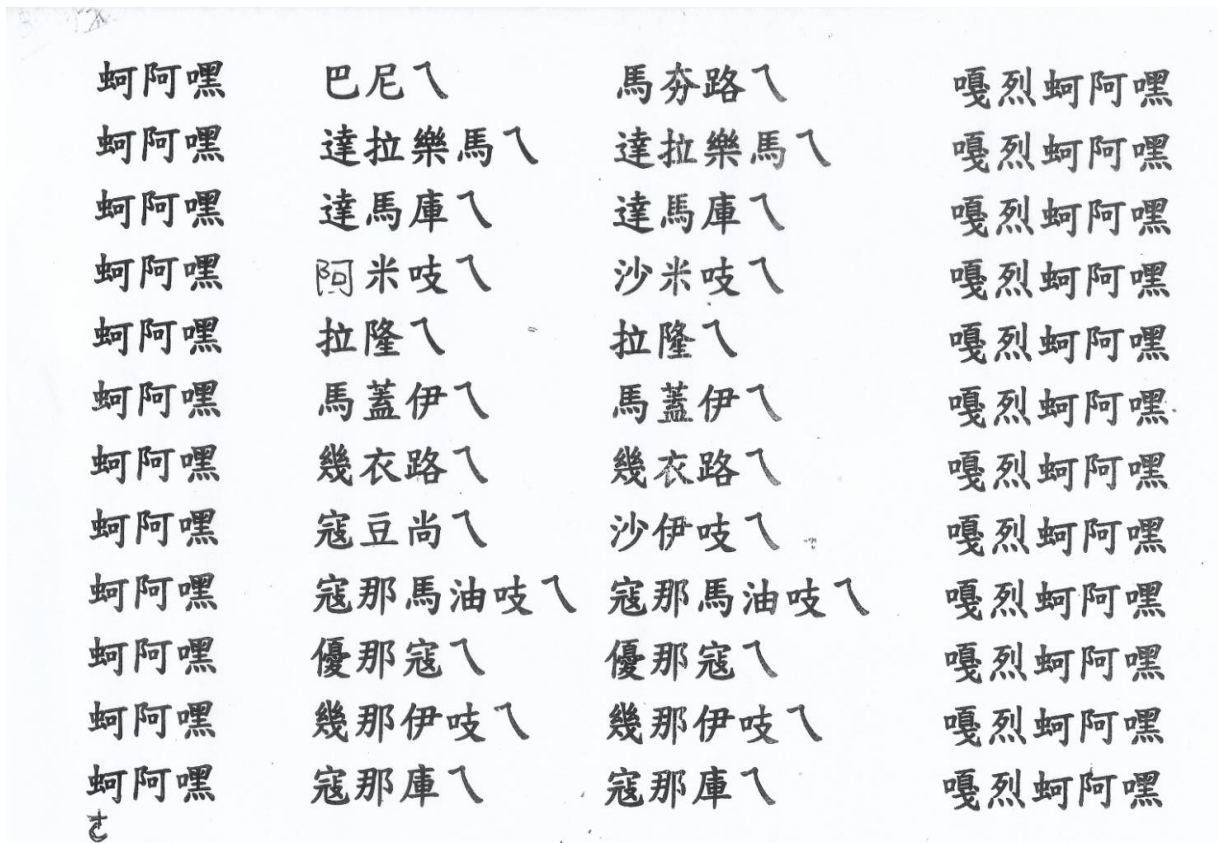 蚵阿嘿 巴尼ㄟ 馬夯路ㄟ 嘎烈蚵阿嘿
蚵阿嘿 達拉樂馬ㄟ 達拉樂馬ㄟ 嘎烈蚵阿嘿
蚵阿嘿 達馬庫ㄟ 達馬庫ㄟ 嘎烈蚵阿嘿
蚵阿嘿 阿米吱ㄟ 沙米吱ㄟ 嘎烈蚵阿嘿
蚵阿嘿 拉隆ㄟ 拉隆ㄟ 嘎烈蚵阿嘿
蚵阿嘿 馬蓋伊ㄟ 馬蓋伊ㄟ 嘎烈蚵阿嘿
蚵阿嘿 幾衣路ㄟ 幾衣路ㄟ 嘎烈蚵阿嘿
蚵阿嘿 寇豆尚ㄟ 沙伊吱ㄟ 嘎烈蚵阿嘿
蚵阿嘿 寇那馬油吱ㄟ 寇那馬油吱ㄟ 嘎烈蚵阿嘿
蚵阿嘿 優那寇ㄟ 優那寇ㄟ 嘎烈蚵阿嘿
蚵阿嘿 幾那伊吱ㄟ 幾那伊吱ㄟ 嘎烈蚵阿嘿
蚵阿嘿 寇那庫ㄟ 寇那庫ㄟ 嘎烈蚵阿嘿